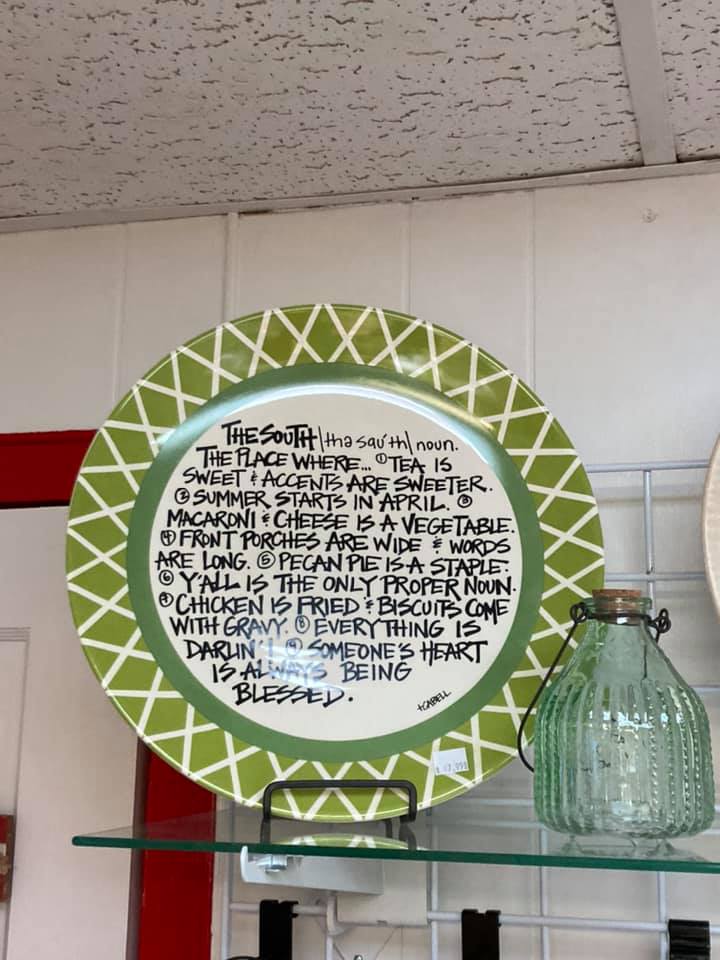 THE SOUTH \tha sau' th\ noun.
THE PLACE WHERE... ① TEA IS
SWEET & ACCENTS ARE SWEETER.
② SUMMER STARTS IN APRIL. ③
MACARONI & CHEESE IS A VEGETABLE.
④ FRONT PORCHES ARE WIDE & WORDS
ARE LONG. ⑤ PECAN PIE IS A STAPLE.
⑥ Y'ALL IS THE ONLY PROPER NOUN.
⑦ CHICKEN IS FRIED & BISCUITS COME
WITH GRAVY. ⑧ EVERYTHING IS
DARLIN'! ⑨ SOMEONE'S HEART
IS ALWAYS BEING
BLESSED.